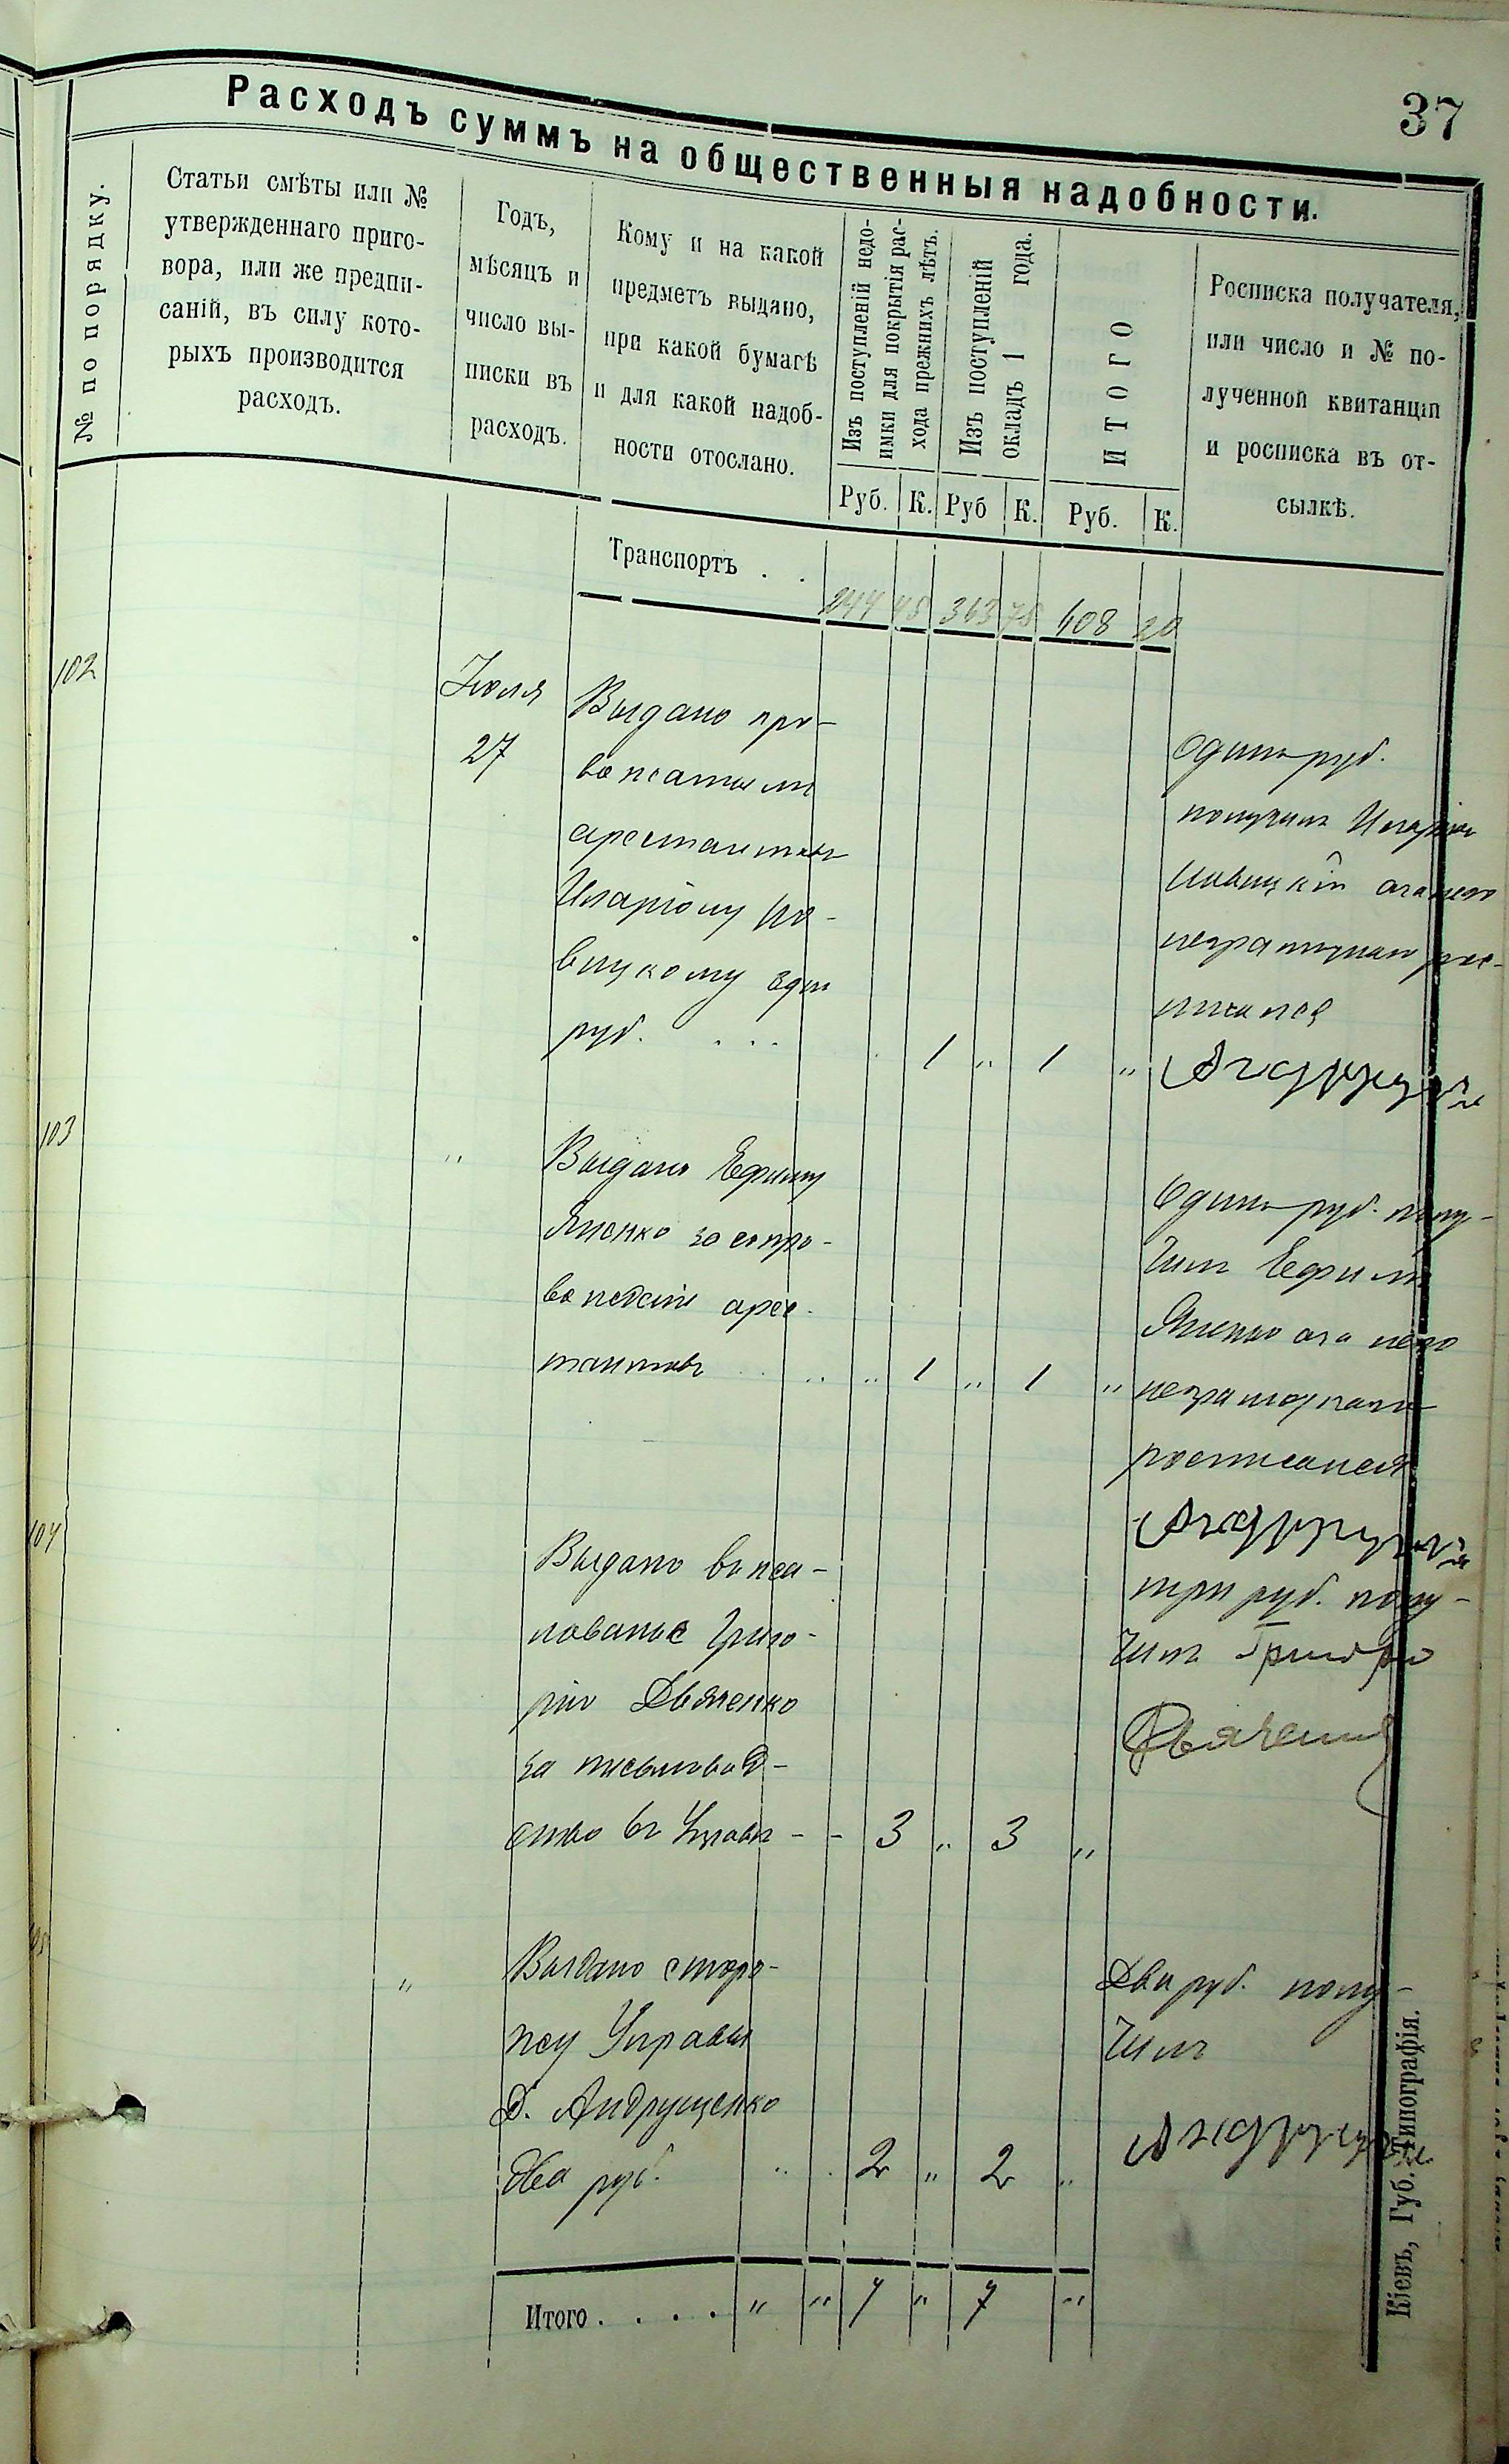 37
Расходъ суммъ на общественныя надобности.
№ по порядку.
Статьи смѣты или №
утвержденнаго приго-
вора, или же предпи-
саній, въ силу кото-
рыхъ производится
расходъ.
Годъ,
мѣсяцъ и
число вы-
писки въ
расходъ.
Кому и на какой
предметъ выдано,
при какой бумагѣ
и для какой надоб-
ности отослано.
Изъ поступленій недо-
имки для покрытія рас-
хода прежнихъ лѣтъ.
Изъ поступленій
окладъ 1 года.
ИТОГО
Росписка получателя,
или число и № по-
лученной квитанціи
и росписка въ от-
сылкѣ.
Руб. К. Руб К. Руб. К.
Транспортъ . .
244 45 363 75 608 20
102
Июля
27
Выдано про-
вожатыми
арестантовъ
Иларіону Но-
вицкому один
руб. . . . 1 " 1 "
Одинъ руб.
получилъ
Новицкій а за него
неграмотнаго рос-
писался
103
"
Выдано Ефиму
Яценко за сопро-
вожденіе арес-
тантовъ . . . " 1 " 1 "
Одинъ руб. полу-
чилъ Ефимъ
Яценко а за него
неграмотнаго
росписался
104
Выдано
Григо-
рію Дьяченко
за письмовод-
ство въ Управѣ - - 3 " 3 "
три руб. полу-
чилъ Григорій
Дьяченко
"
Выдано сторо-
жу Управы
Д. Андрущенко
два руб. 2 " 2 "
Два руб. полу-
чилъ
Итого . . . . " " 7 " 7 "
Кіевъ, Губ. Типографія.